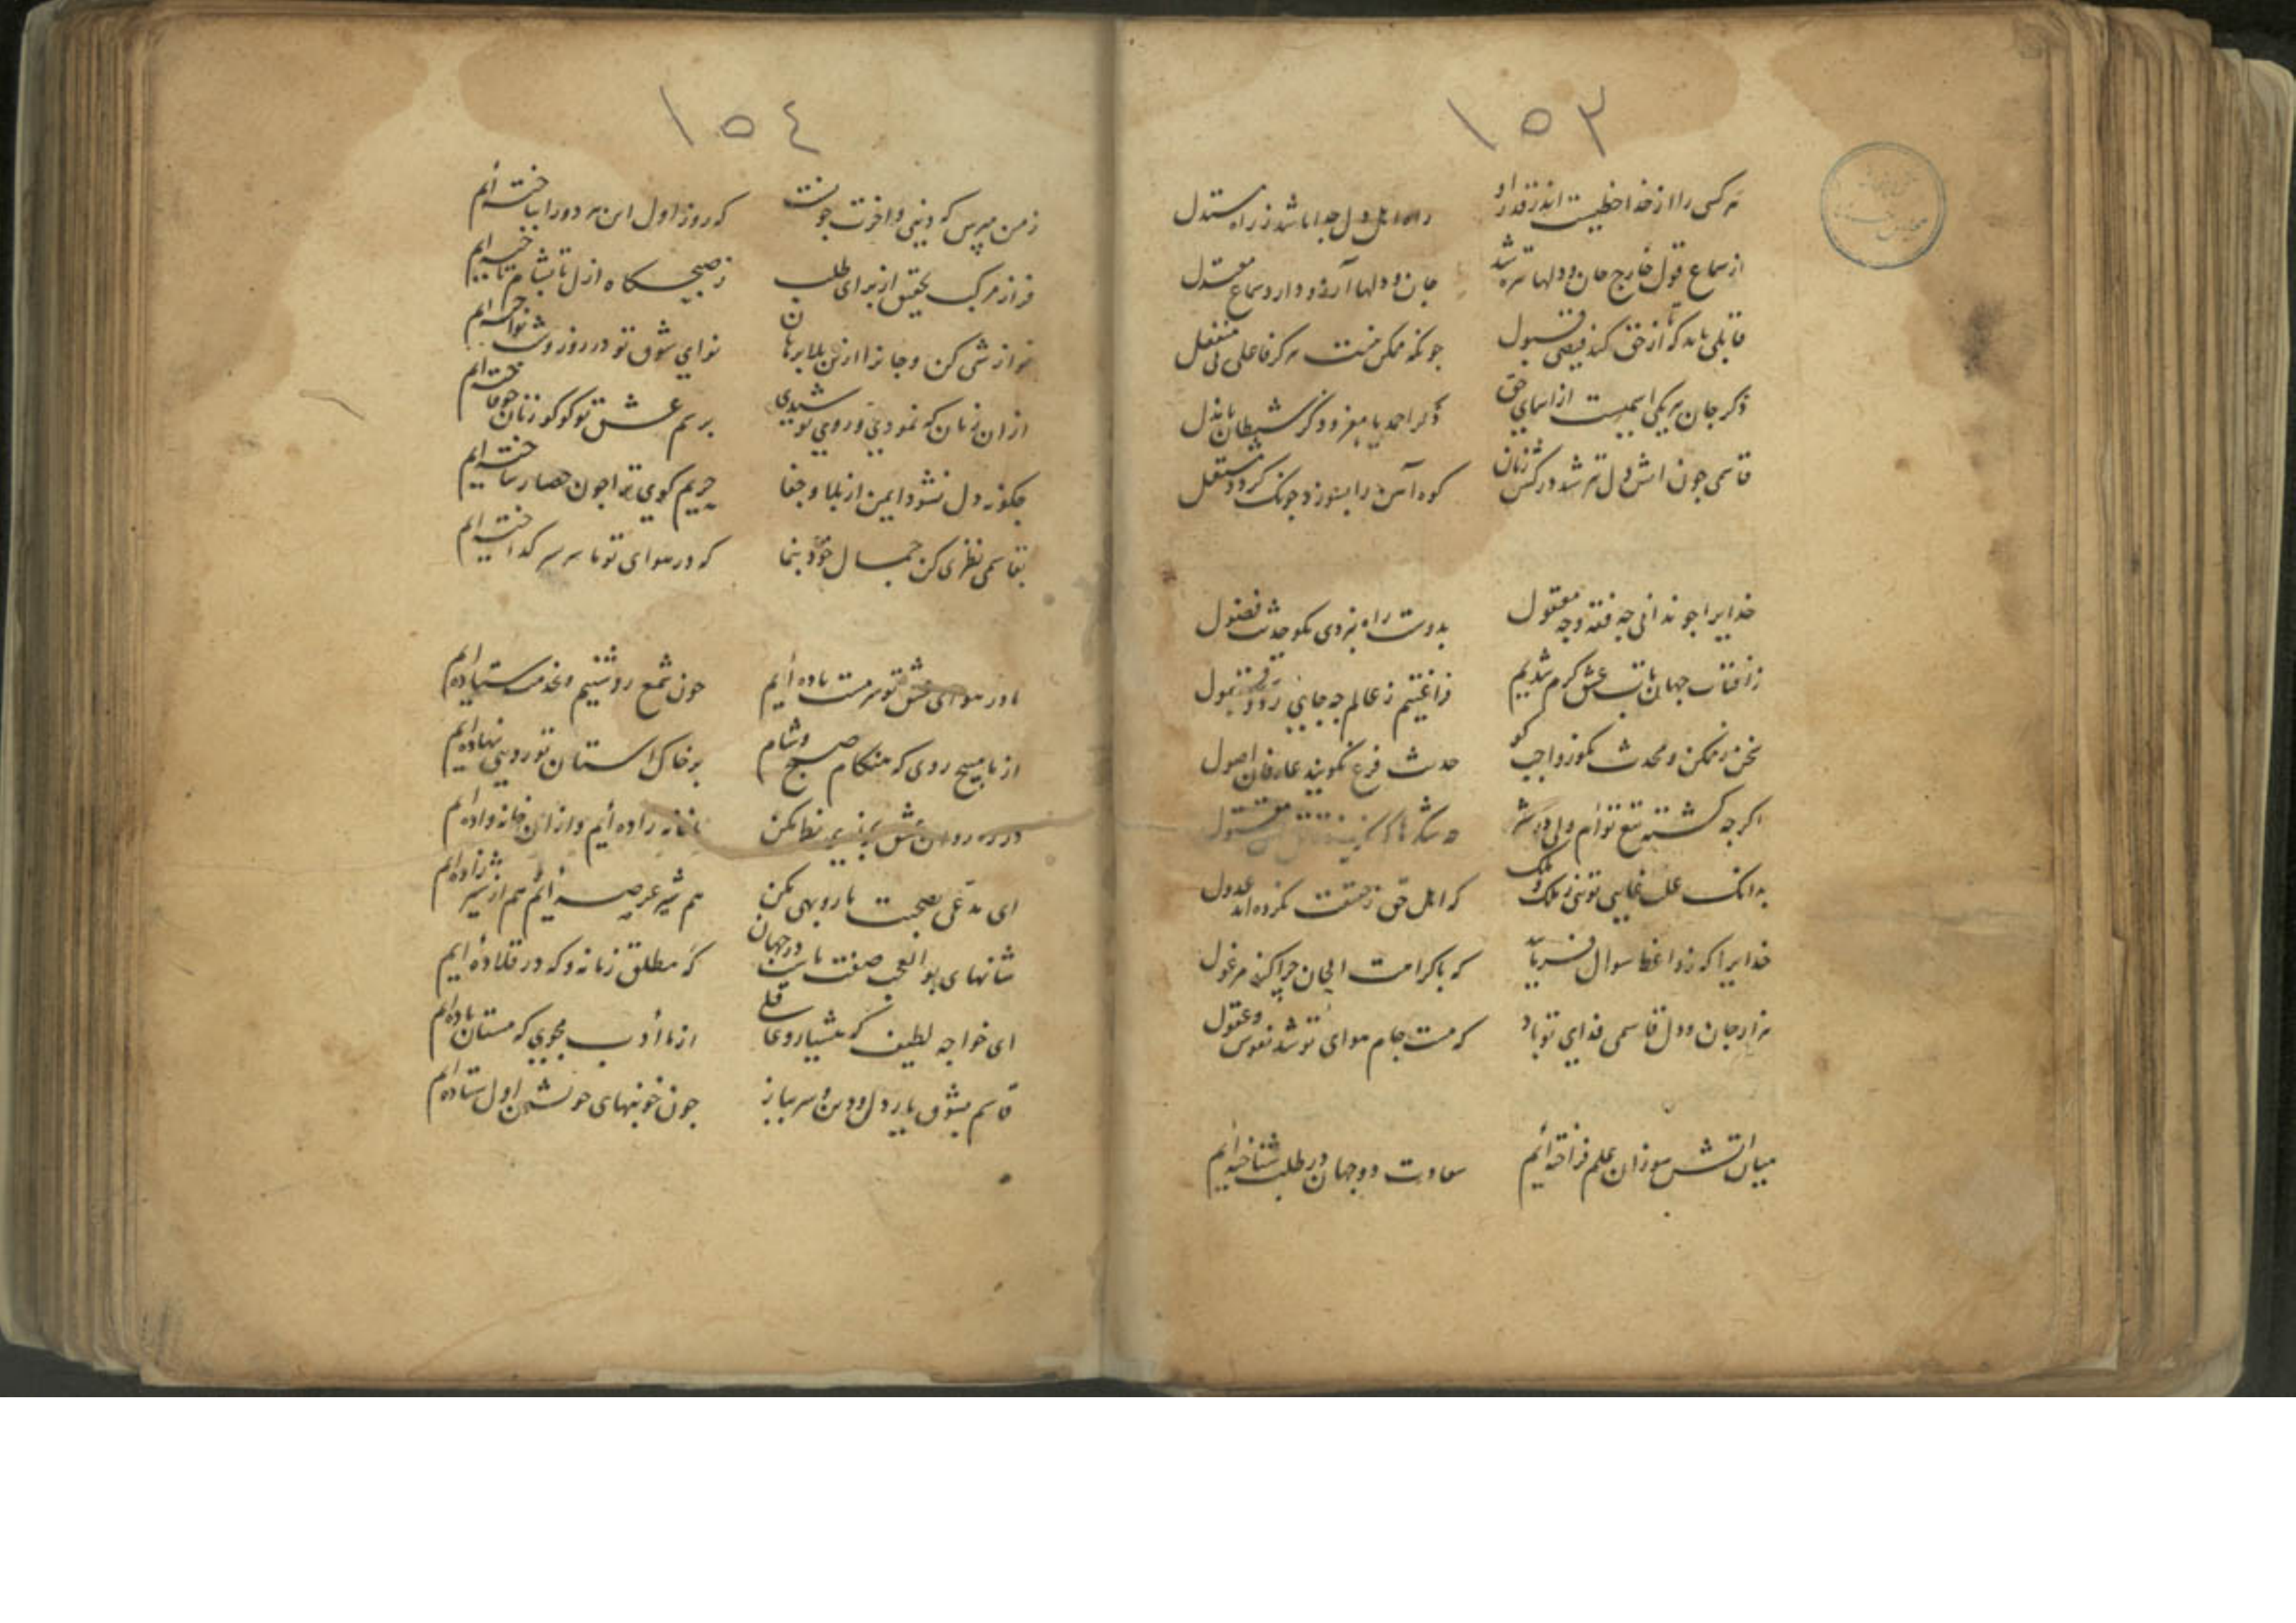 ١٥٣
هر کسی را از خدا حظیست اندر قدر او
راه اهل دل جدا باشد ز راه مستدل
از سماع قول خارج جان و دلها تیره شد
جان و دلها آرزو دارد سماع معتدل
قابلی باید که تا از حق کند فیضی قبول
چونکه ممکن نیست هرگز فاعلی بی منفعل
ذکر جان هر یکی اسمیست از اسمای حق
ذکر احمد یا معز و ذکر شیطان یا مذل
قاسمی چون آتش دل تیز شد در کش زبان
کوه آهن را بسوزد چونک گردد مشتعل
خدایرا چو ندانی چه فقه و چه معقول
بدوست راه نبردی مگو حدیث فضول
ز آفتاب جهان تاب عشق گرم شدیم
فراغتیم ز عالم چه جای رد و قبول
سخن ز ممکن و محدث مگو ز واجب گو
حدیث فرع نگویند عارفان اصول
اگرچه کشته تیغ توام ولی
مقتول
بدانک علت غایی تویی ز ملک و ملک
که اهل حق ز حقیقت نکرده اند عدول
خدایرا که ز واعظ سوال فرمایید
که با کرامت الحان چرا کند مرغول
هزار جان و دل قاسمی فدای تو باد
که مست جام هوای تو شد نفوس و عقول
میان آتش سوزان علم فراخته ایم
سعادت دو جهان در طلب شناخته ایم
١٥٤
ز من مپرس که دنیی و آخرت چونست
که روز اول این هر دو را بباخته ایم
فراز مرکب تحقیق از برای طلب
ز صبحگاه ازل تا بشام تاخته ایم
نوازشی کن و جانرا ازین بلا برهان
نوای شوق تو در روز و شب نواخته ایم
از آن زمان که نمودی و روی پوشیدی
برسم عشق تو کوکو زنان چو فاخته ایم
چگونه دل نشود ایمن از بلا و جفا
حریم کوی ترا چون حصار ساخته ایم
بقاسمی نظری کن جمال خود بنما
که در هوای تو ما سر بسر گداخته ایم
ما در هوای عشق تو سرمست باده ایم
چون شمع روشنیم و بخدمت ستاده ایم
از ما مپیچ روی که هنگام صبح و شام
بر خاک آستان تو رویی نهاده ایم
در ره روان عشق نظر کن
خانه زاده ایم و از آن خانواده ایم
ای مدعی بصحبت ما روبهی مکن
هم شیر عرصه ایم هم از شیر زاده ایم
شانهای بوالعجب صفت ماست در جهان
که مطلق زمانه و که در قلاده ایم
ای خواجه لطیف که هشیار و عاقلی
از ما ادب مجوی که مستان باده ایم
قاسم بشوق یار دل و دین و سر بباز
چون خونبهای خویشتن اول ستاده ایم